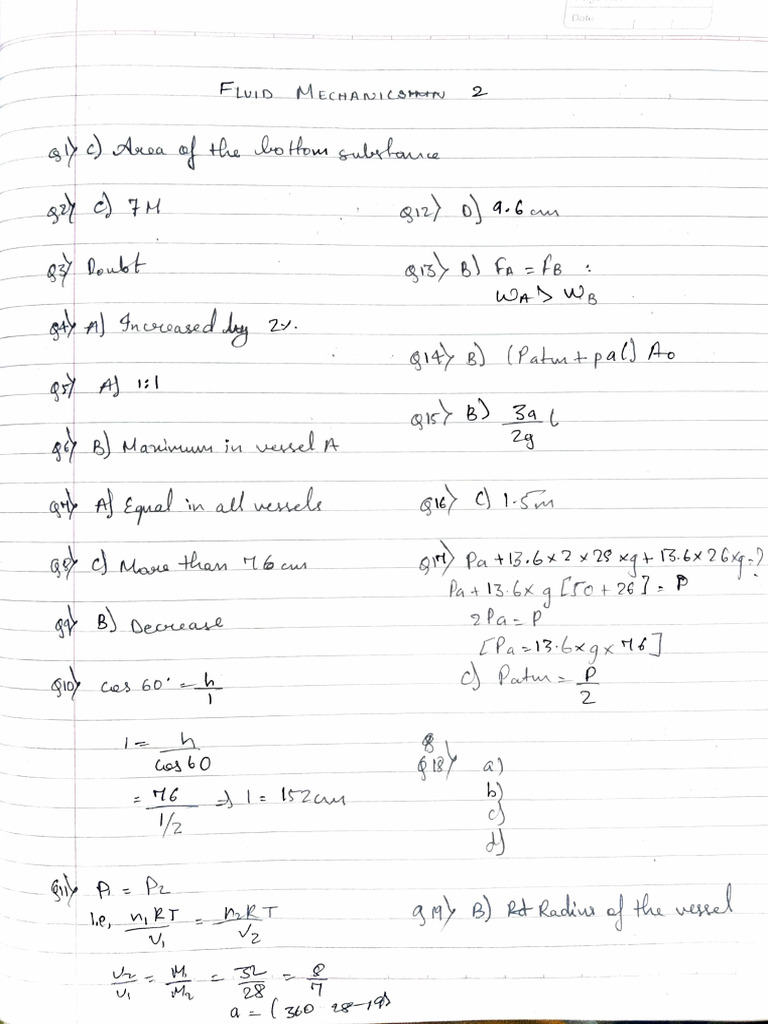 Date
FLUID MECHANICS 2
Q1) C) Area of the bottom substance
Q2) C) 7M
Q3) Doubt
Q4) A) Increased by 2%.
Q5) A) 1:1
Q6) B) Maximum in vessel A
Q7) A) Equal in all vessels
Q8) C) More than 76 cm
Q9) B) Decrease
Q10) cos 60° = h/l
l = h/cos60
= 76/1/2 ⇒ l = 152cm
Q11) P1 = P2
i.e, n1RT/V1 = n2RT/V2
V2/V1 = M1/M2 = 32/28 = 8/7
a = (360 28-19)
Q12) D) 9.6 cm
Q13) B) FA = FB :
WA > WB
Q14) B) (Patm + pal) A0
Q15) B) 3a/2g l
Q16) C) 1.5m
Q17) Pa + 13.6 x 2 x 28 x g + 13.6 x 26 x g = ?
Pa + 13.6 x g [50 + 26] = P
2Pa = P
[Pa = 13.6 x g x 76]
C) Patm = P/2
8
Q18) a)
b)
c)
d)
Q19) B) Radius of the vessel